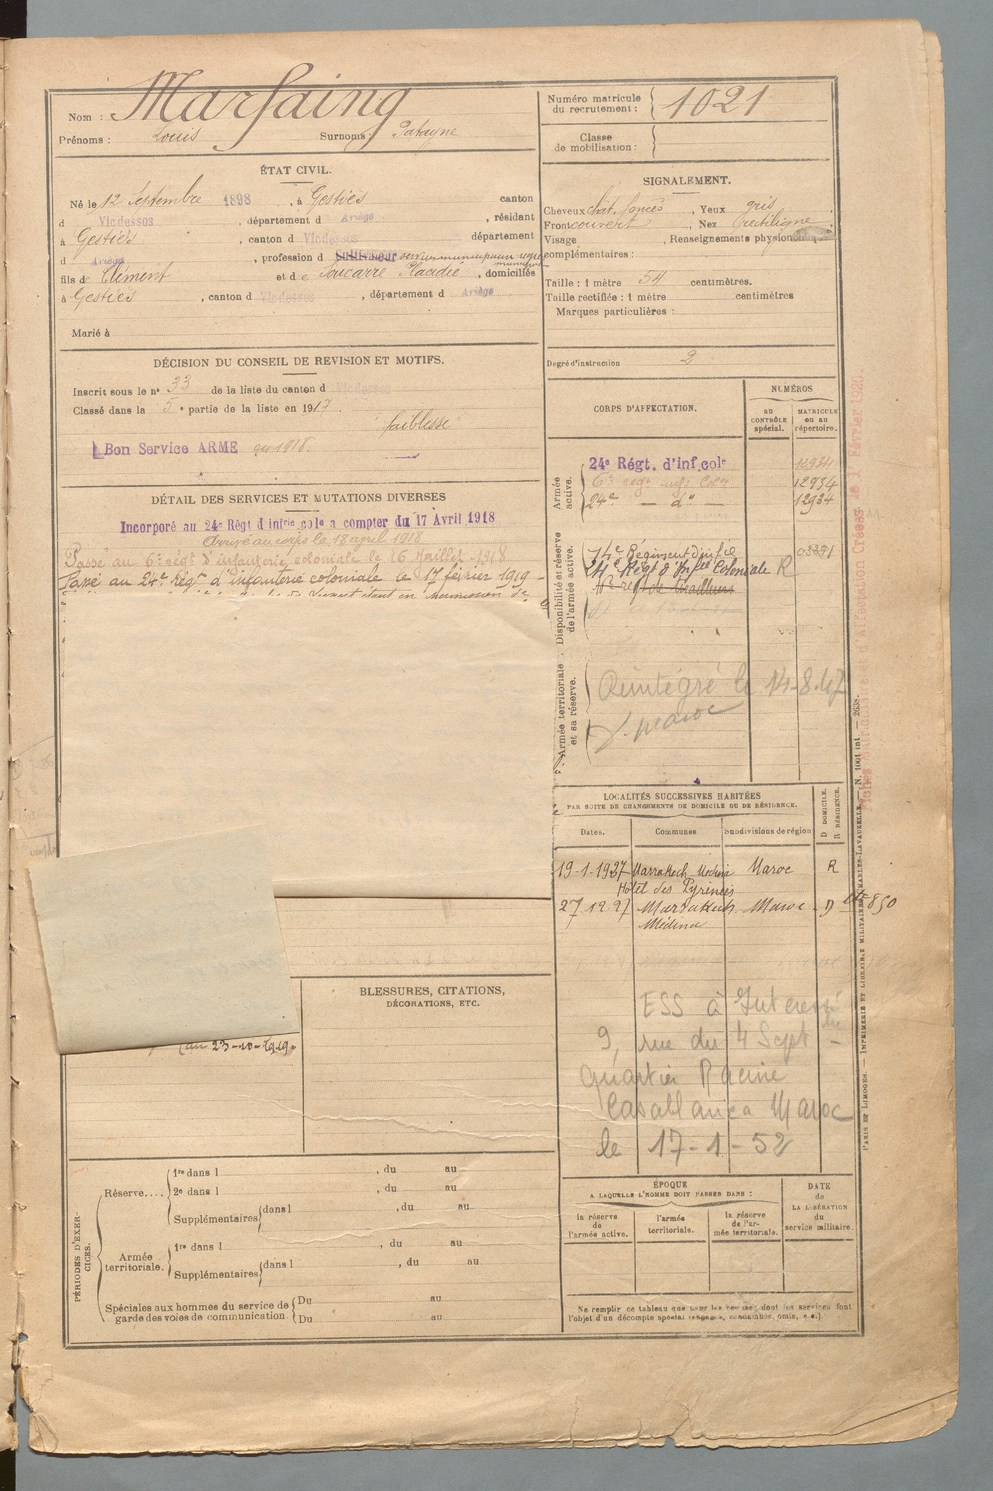 Nom : Marfaing
Prénoms : Louis Surnoms :
Numéro matricule du recrutement : 1021
Classe de mobilisation :
ÉTAT CIVIL.
Né le 12 Septembre 1898, à Gestiès canton
d Vicdessos, département d Ariège, résidant
à Gestiès, canton d Vicdessos département
d Ariège, profession d
fils de Clément et de Placidie, domiciliés
à Gestiès, canton d Vicdessos, département d Ariège
Marié à
SIGNALEMENT.
Cheveux chât. foncés, Yeux gris
Front couvert, Nez rectiligne
Visage, Renseignements physionomiques
complémentaires :
Taille : 1 mètre 54 centimètres.
Taille rectifiée : 1 mètre centimètres
Marques particulières :
Degré d'instruction 2
DÉCISION DU CONSEIL DE REVISION ET MOTIFS.
Inscrit sous le n° 33 de la liste du canton d Vicdessos
Classé dans la 5e partie de la liste en 1917.
"faiblesse"
Bon Service ARME en 1918.
DÉTAIL DES SERVICES ET MUTATIONS DIVERSES
Incorporé au 24e Régt d'infrie cole a compter du 17 Avril 1918
Arrivé au corps le 18 avril 1918
Passé au 6e régt d'infanterie coloniale le 16 Juillet 1918
Passé au 24e régt d'infanterie coloniale le 17 février 1919
au 23-10-1919.
CORPS D'AFFECTATION.
NUMÉROS
AU CONTRÔLE spécial.
MATRICULE ou au répertoire.
Armée active.
24e Régt. d'inf cole 12934
6e régt inf. cole 12934
24e — d° — 12934
Disponibilité et réserve de l'armée active.
14e Régiment d'infie
24e Régt d'Infie Coloniale R
Armée territoriale et sa réserve.
Réintégré le 14-8-47
Maroc
LOCALITÉS SUCCESSIVES HABITÉES
PAR SUITE DE CHANGEMENTS DE DOMICILE OU DE RÉSIDENCE.
Dates. Communes Subdivisions de région D DOMICILE. R RÉSIDENCE.
19-1-1927 Marrakech Médina Maroc R
Hôtel des Pyrénées
Marrakech Maroc D
Médina
ESS à Intéressé
9, rue du 4 Sept
Quartier Racine
Casablanca Maroc
le 17-1-52
BLESSURES, CITATIONS,
DÉCORATIONS, ETC.
PÉRIODES D'EXERCICES.
Réserve.... 1re dans l , du au
2e dans l , du au
Supplémentaires dans l , du au
Armée territoriale. 1re dans l , du au
Supplémentaires dans l , du au
Spéciales aux hommes du service de garde des voies de communication. Du au
Du au
ÉPOQUE
A LAQUELLE L'HOMME DOIT PASSER DANS :
la réserve de l'armée active.
l'armée territoriale.
la réserve de l'armée territoriale.
DATE de LA LIBÉRATION du service militaire.
Ne remplir ce tableau que pour les hommes dont les services font
l'objet d'un décompte spécial (engagés, condamnés, omis, etc.).
PARIS ET LIMOGES. — IMPRIMERIE ET LIBRAIRIE MILITAIRES CHARLES-LAVAUZELLE. — N. 1001 int. — 2638.